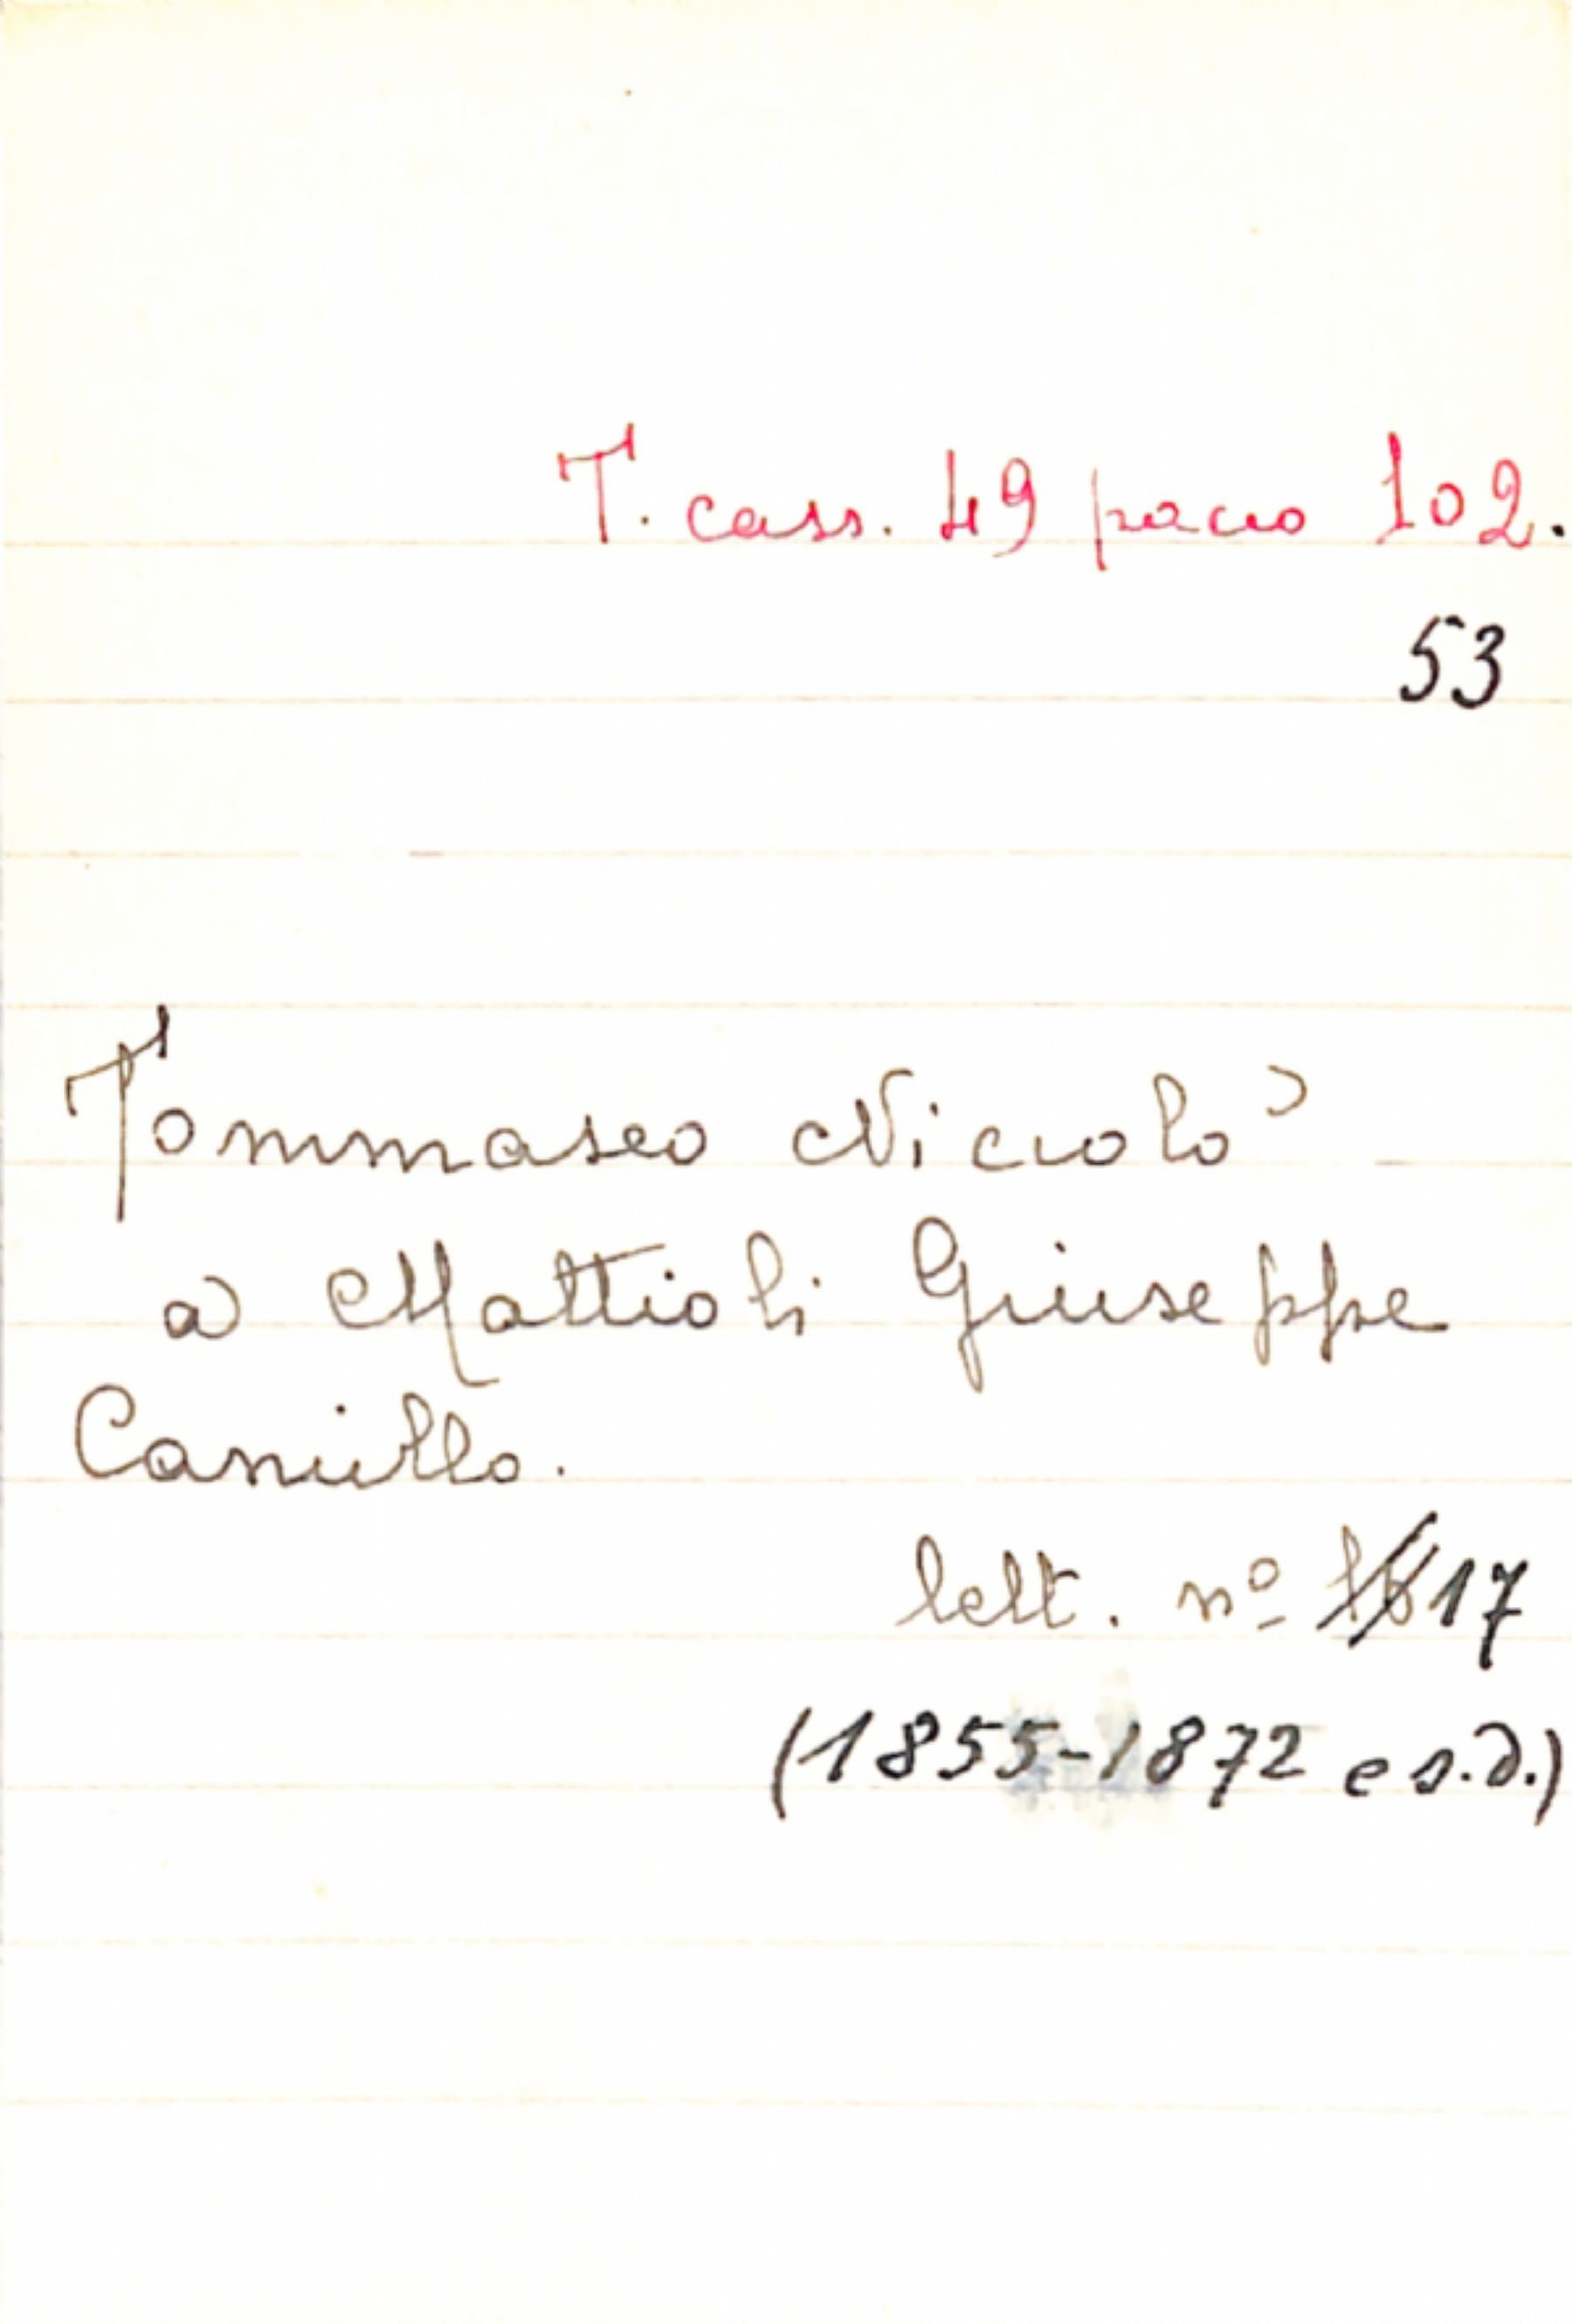 T. cass. 49 pacco 102.
53
Tommaseo Niccolò
a Mattioli Giuseppe
Camillo.
lett. nº 17
(1855-1872 e s.d.)